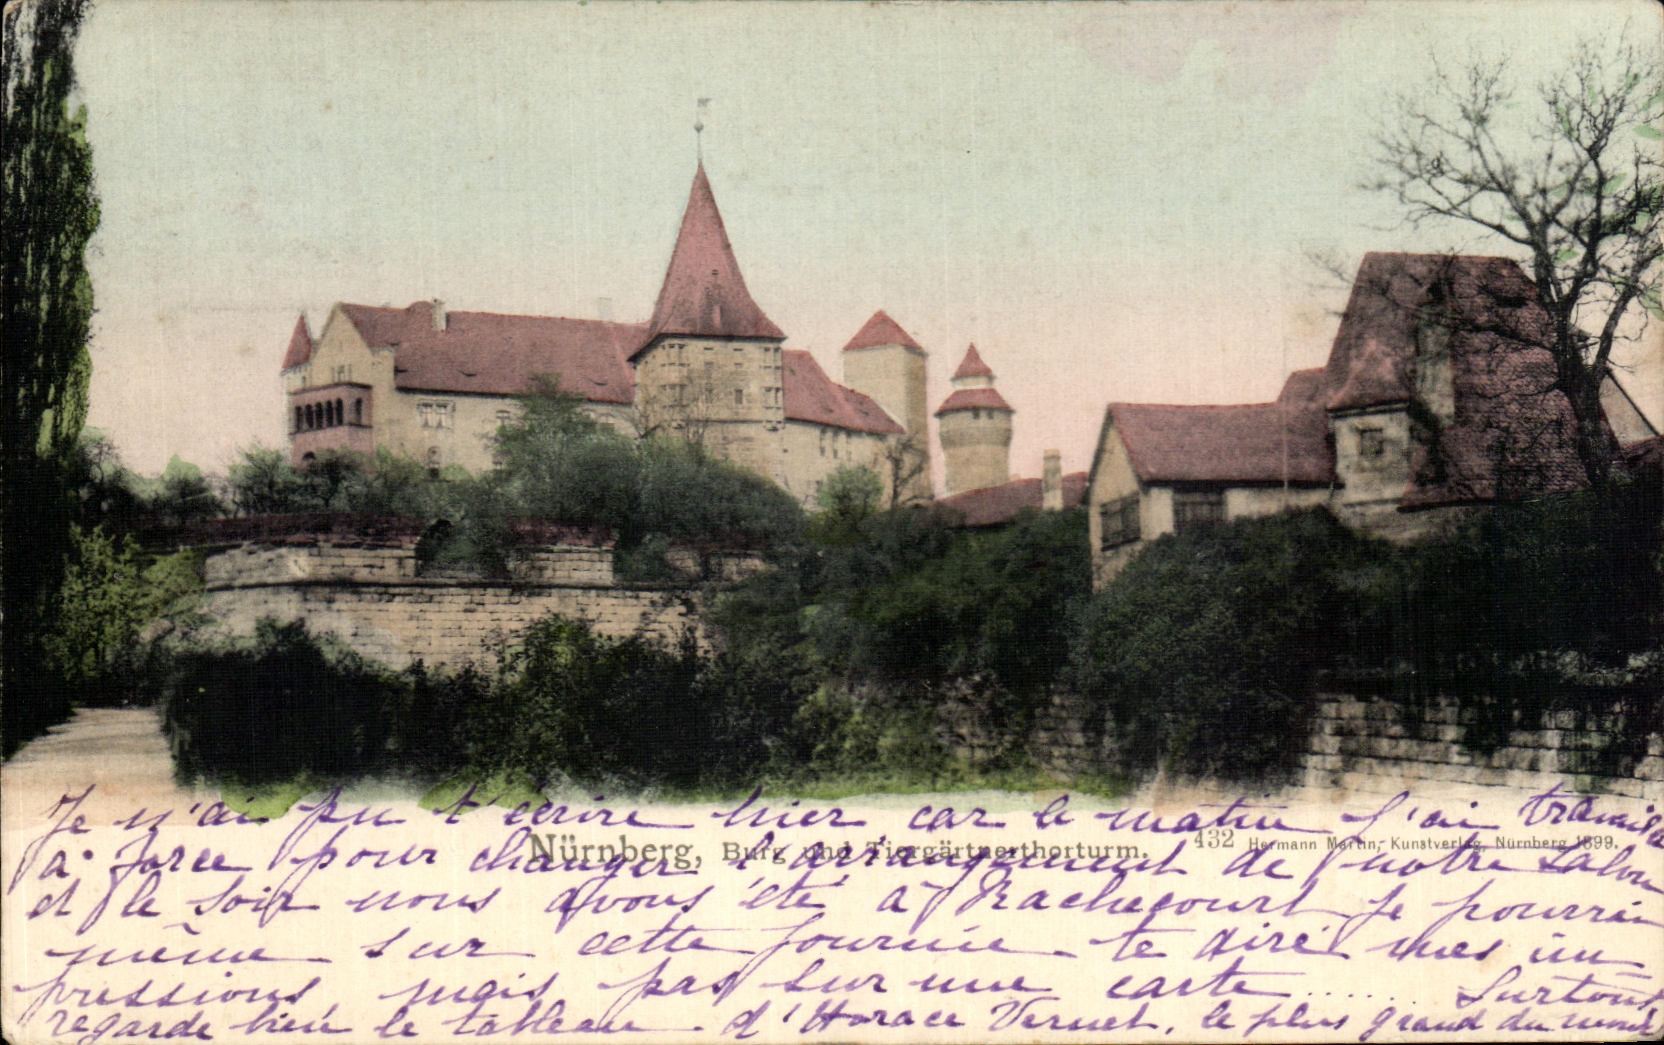 Je n'ai pu t'écrire hier car le matin j'ai travaillé
Nürnberg, Burg und Tiergärtnerthorturm. 432 Hermann Martin, Kunstverlag, Nürnberg 1899.
à force pour changer l'arrangement de notre salon
et le soir nous avons été à Rachecourt je pourrai
même sur cette journée te dire mes im-
pressions, mais pas sur une carte....... Surtout
regarde bien le tableau d'Horace Vernet, le plus grand du monde